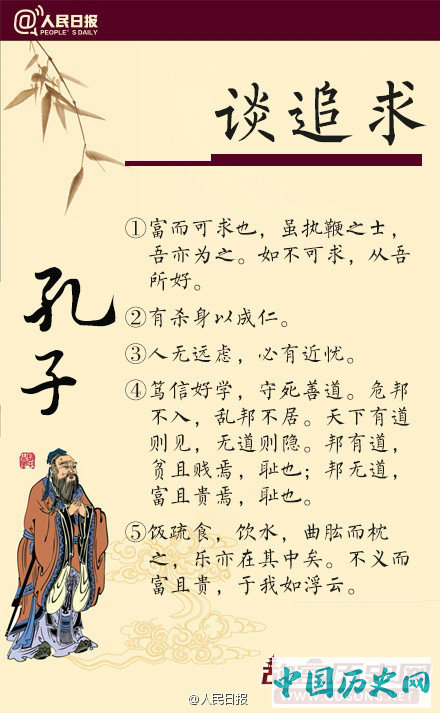 @人民日报
PEOPLE'S DAILY
谈追求
孔子
①富而可求也，虽执鞭之士，
吾亦为之。如不可求，从吾
所好。
②有杀身以成仁。
③人无远虑，必有近忧。
④笃信好学，守死善道。危邦
不入，乱邦不居。天下有道
则见，无道则隐。邦有道，
贫且贱焉，耻也；邦无道，
富且贵焉，耻也。
⑤饭疏食，饮水，曲肱而枕
之，乐亦在其中矣。不义而
富且贵，于我如浮云。
中国历史网
@人民日报